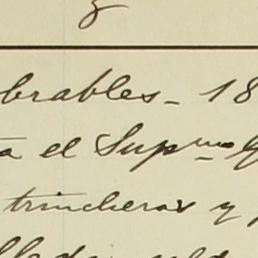 brables - 18
a el Sup.mo G
trincheras y